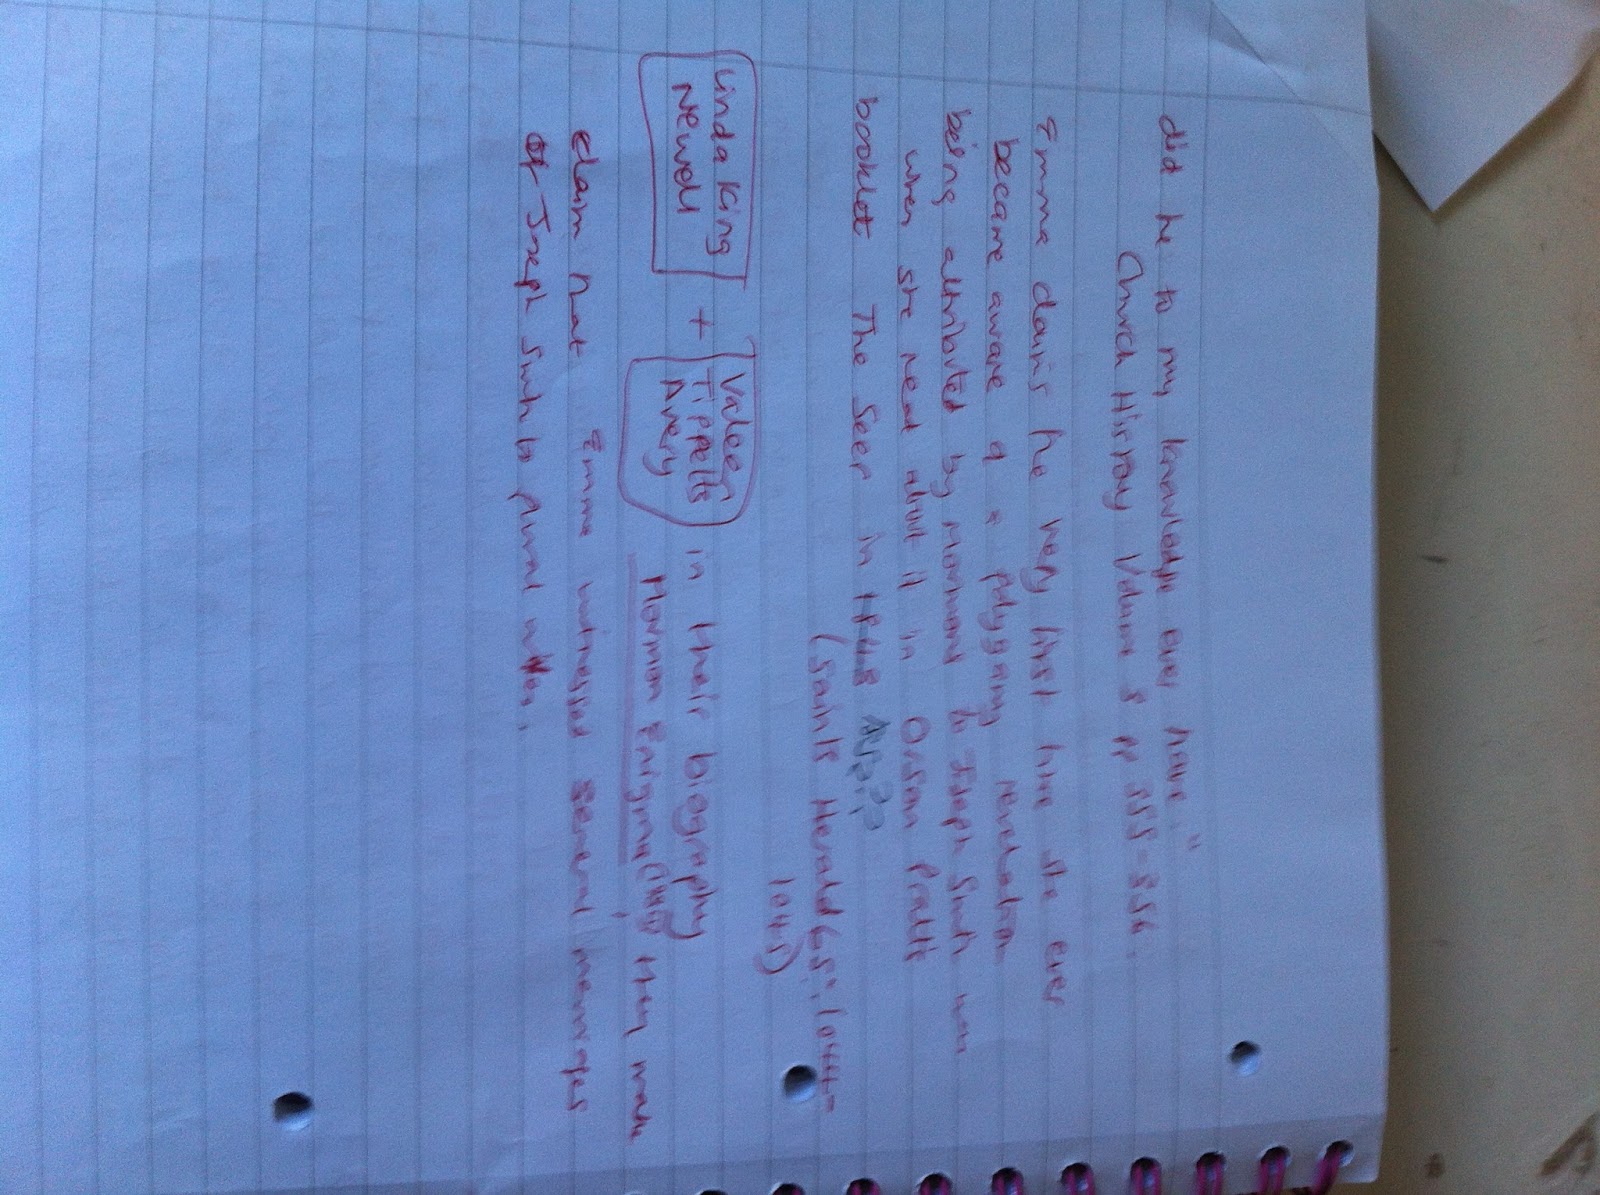 did he to my knowledge ever have."
Church History Volume 3 pp 355-356.
Emma claims the very first time she ever
became aware of a polygamy revelation
being attributed by mormons to Joseph Smith was
when she read about it in Orson Pratts
booklet The Seer in 1848
(Saints Herald 65:1044-
1045)
Linda King Newell + Valeen Tippetts Avery in their biography
Mormon Enigma they make
claim that Emma witnessed several marriages
of Joseph Smith to plural wives.